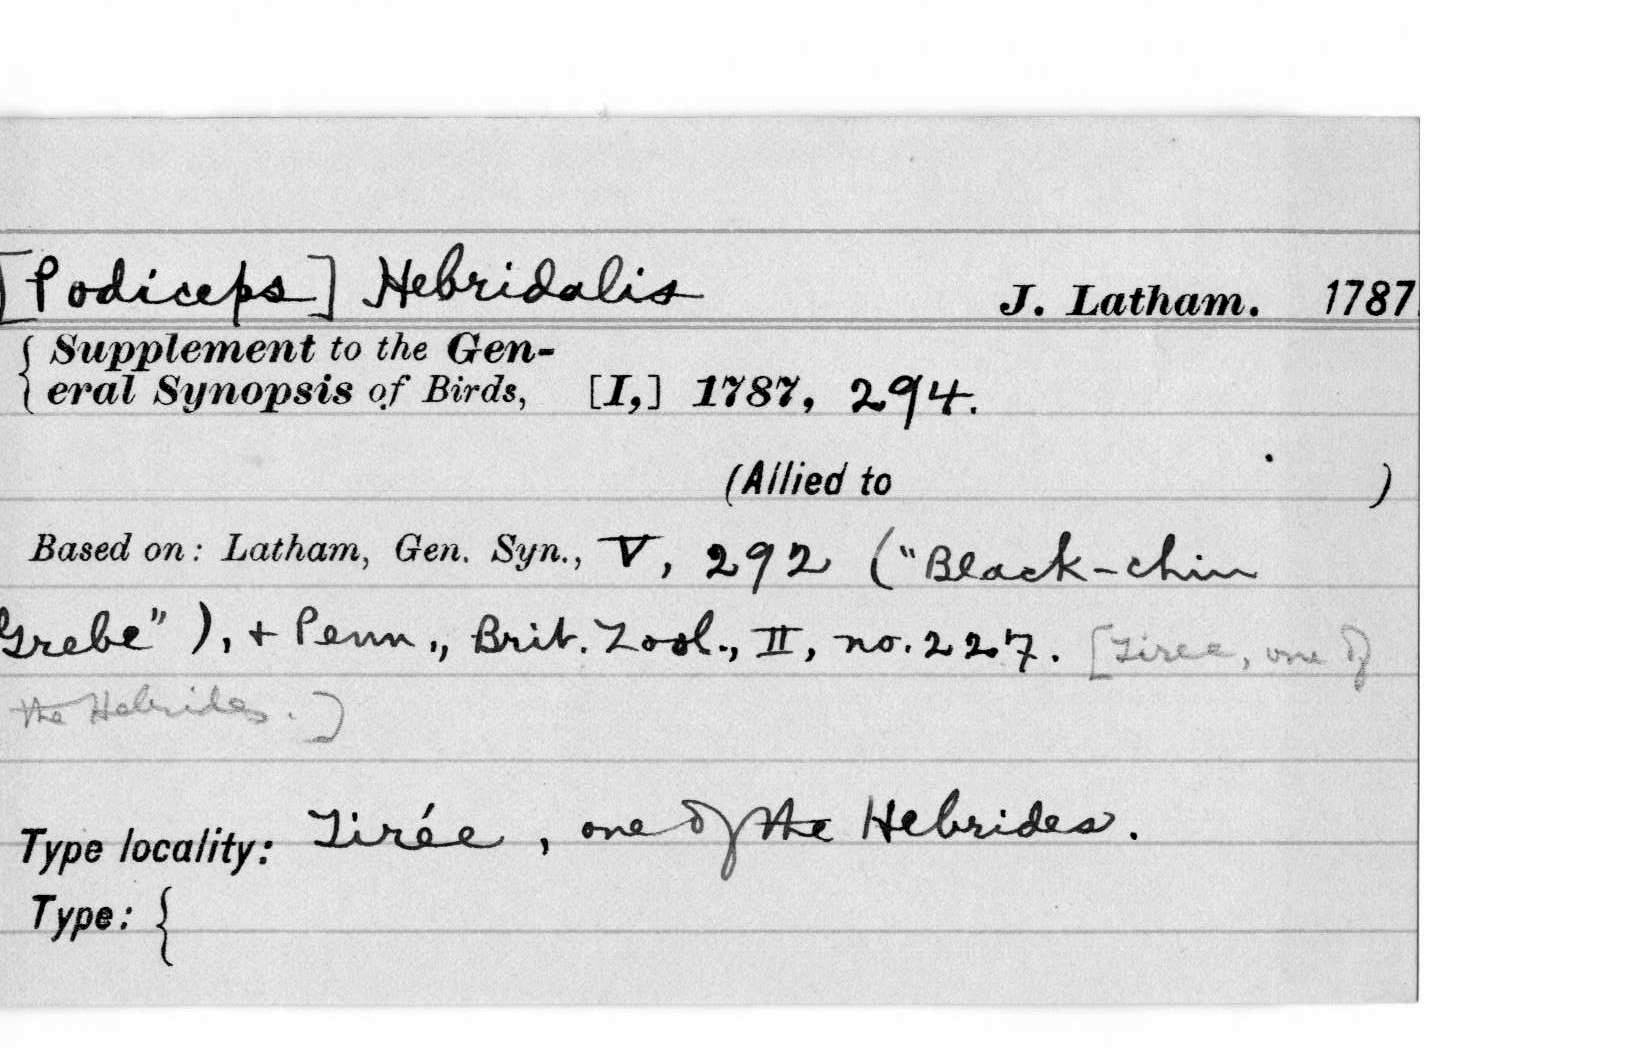 [Podiceps] Hebridalis J. Latham. 1787.
{ Supplement to the Gen-
eral Synopsis of Birds, [I,] 1787, 294.
(Allied to )
Based on: Latham, Gen. Syn., V, 292 ("Black-chin
Grebe"), + Penn., Brit. Zool., II, no. 227. [Tiree, one of
the Hebrides.]
Type locality: Tirée, one of the Hebrides.
Type: {